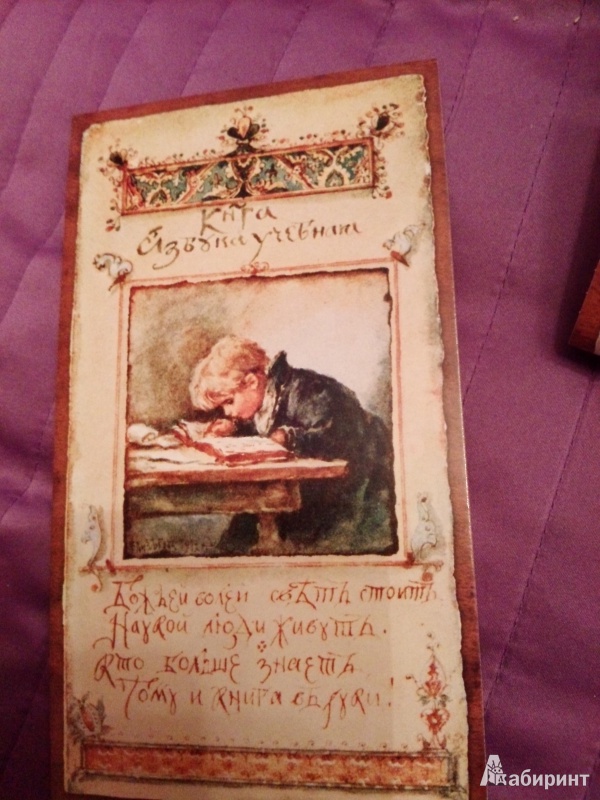 Кнiга
Азъбука учебная
Божьеи волеи свѣтъ стоитъ
Наукой люди живутъ.
Кто больше знаетъ
Тому и книга въ руки!
Лабиринт